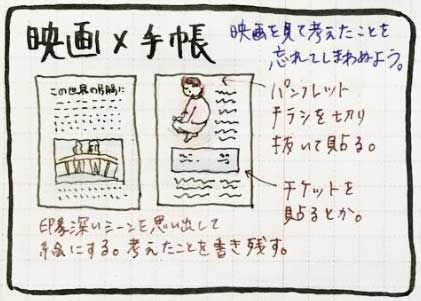 映画×手帳
映画を見て考えたことを
忘れてしまわぬよう。
この世界の片隅に
パンフレット
チラシを切り
抜いて貼る。
チケットを
貼るとか。
印象深いシーンを思い出して
絵にする。考えたことを書き残す。